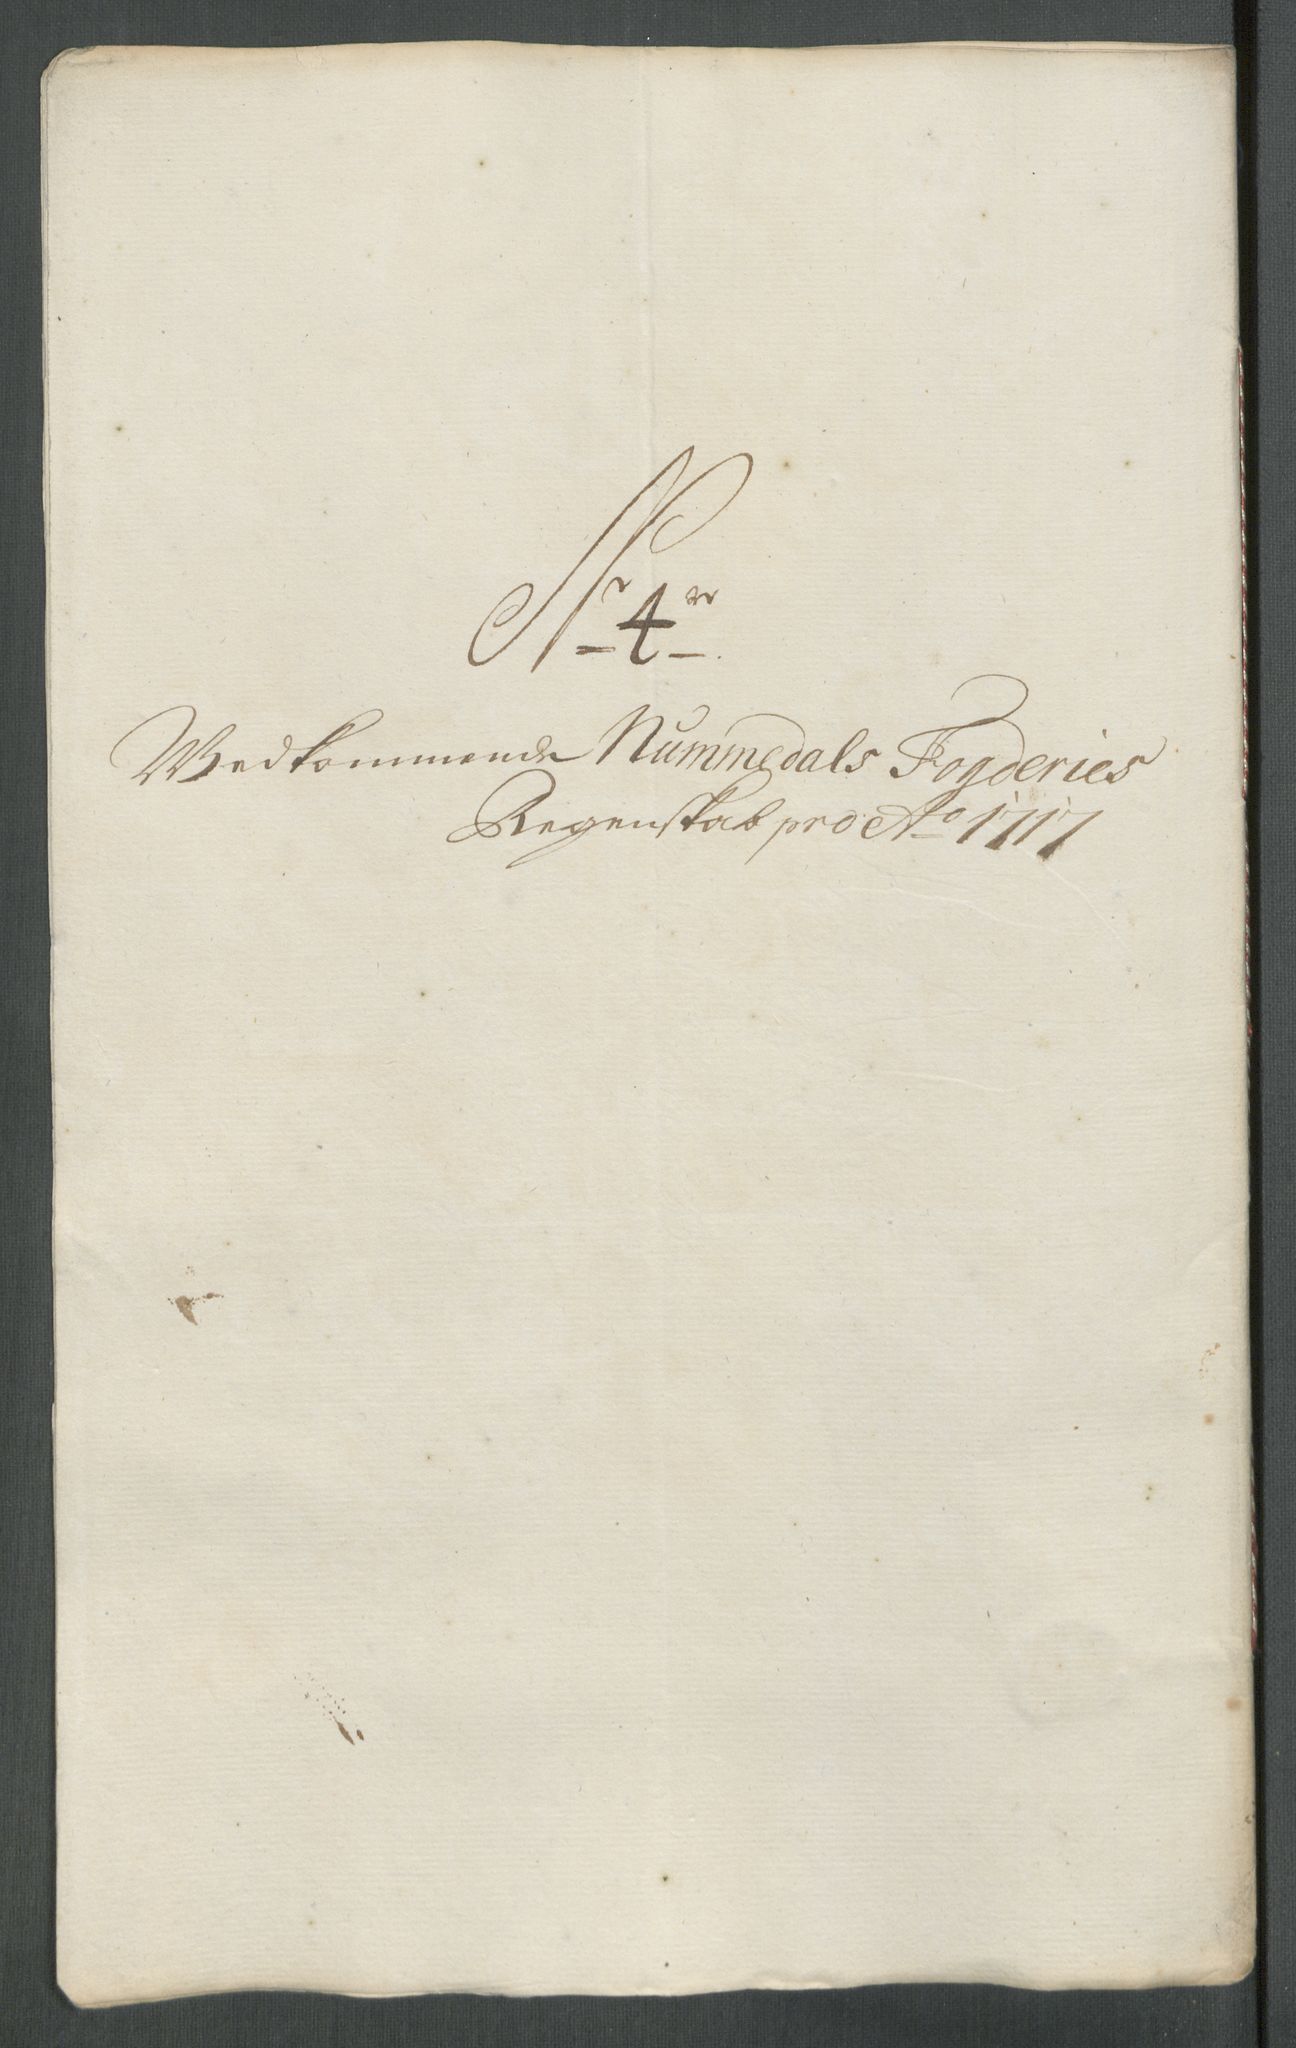 Nr 4
Wedkommende Nummedals Fogderies
Regenskab pro Ao 1717